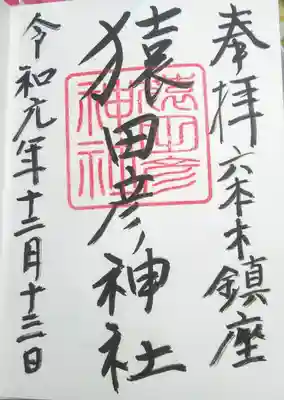 奉拝 六本木鎮座
猿田彦神社
猿田彦神社
令和元年十二月十三日